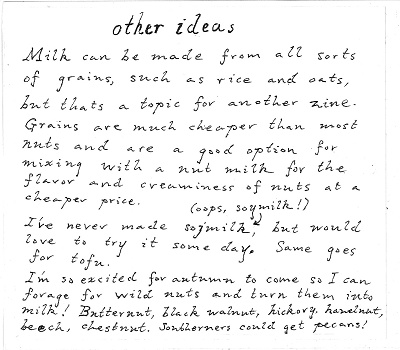 other ideas
Milk can be made from all sorts
of grains, such as rice and oats,
but thats a topic for another zine.
Grains are much cheaper than most
nuts and are a good option for
mixing with a nut milk for the
flavor and creaminess of nuts at a
cheaper price.
(oops, soymilk!)
I've never made sojmilk, but would
love to try it some day. Same goes
for tofu.
I'm so excited for autumn to come so I can
forage for wild nuts and turn them into
milk! Butternut, black walnut, hickory, hazelnut,
beech, chestnut. Southerners could get pecans!